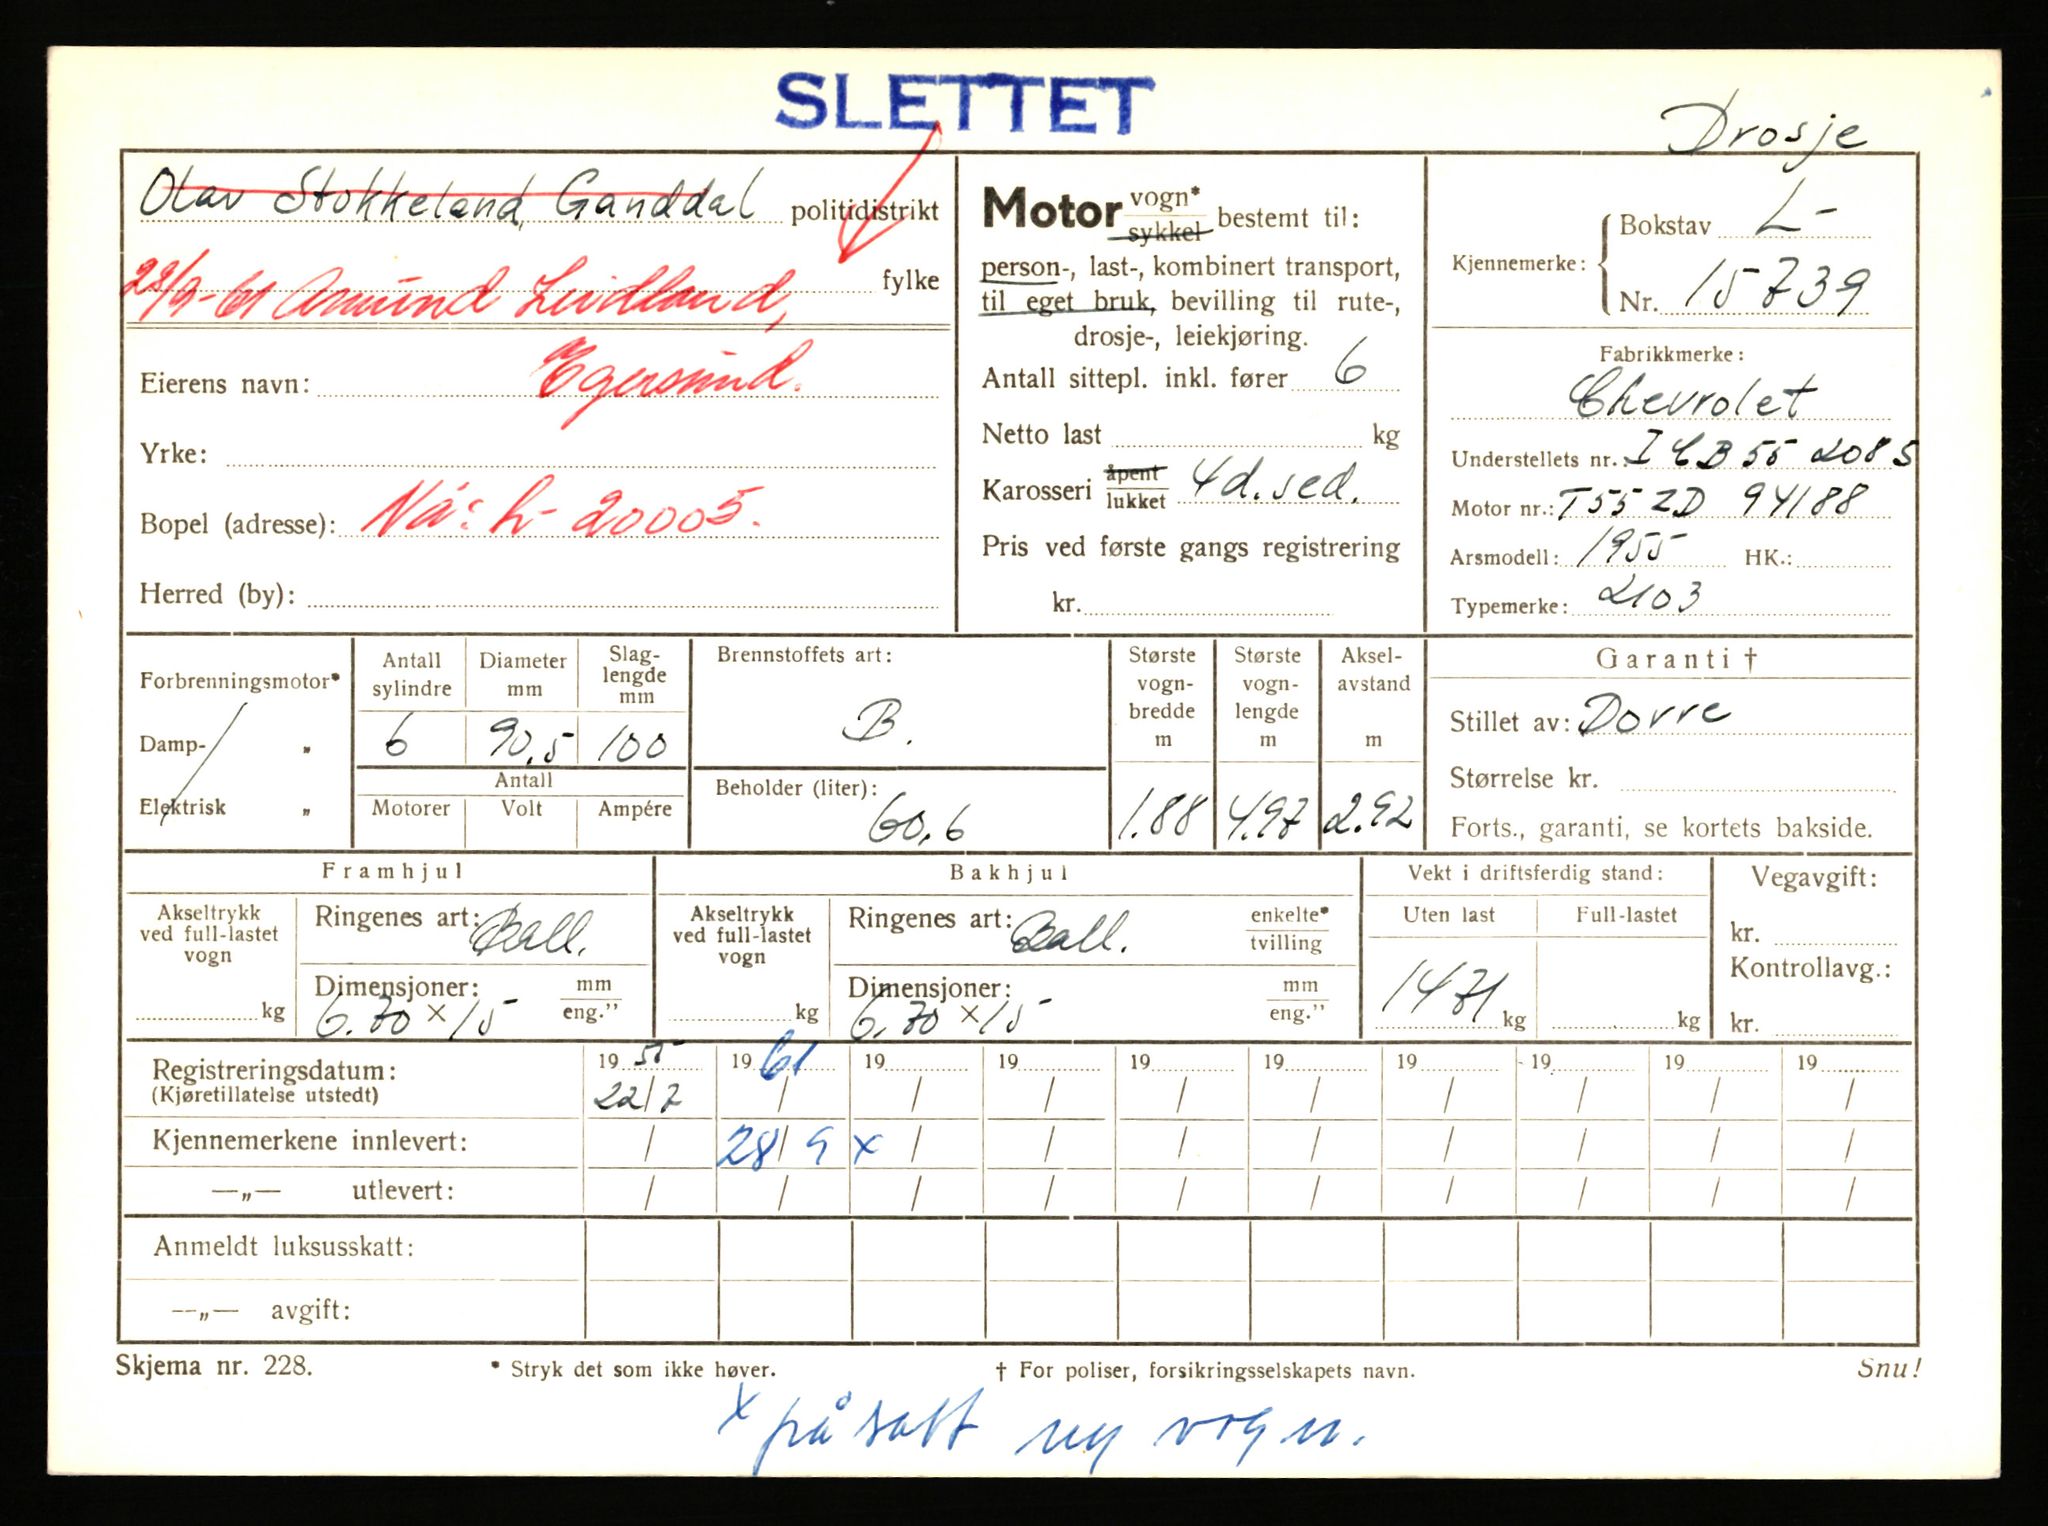 SLETTET
Drosje
Olav Stokkeland, Ganddal politidistrikt
28/9-61 Amund Leidland, fylke
Eierens navn: Egersund.
Yrke:
Bopel (adresse): Nå: L- 20005.
Herred (by):
Motor vogn* sykkel bestemt til:
person-, last-, kombinert transport,
til eget bruk, bevilling til rute-,
drosje-, leiekjøring.
Antall sittepl. inkl. fører 6
Netto last kg
Karosseri åpent lukket 4d. sed.
Pris ved første gangs registrering
kr.
Kjennemerke: Bokstav L-
Nr. 15739
Fabrikkmerke:
Chevrolet
Understellets nr.: I CB 55 2085
Motor nr.: T55 ZD 94188
Arsmodell: 1955 HK.:
Typemerke: 2103
Forbrenningsmotor*
Damp- „
Elektrisk „
Antall sylindre 6
Diameter mm 90,5
Slag-lengde mm 100
Antall
Motorer Volt Ampére
Brennstoffets art:
B.
Beholder (liter):
60,6
Største vogn-bredde m 1.88
Største vogn-lengde m 4.97
Aksel-avstand m 2.92
Garanti †
Stillet av: Dovre
Størrelse kr.
Forts., garanti, se kortets bakside.
Framhjul
Akseltrykk ved full-lastet vogn
kg
Ringenes art: Ball.
Dimensjoner: mm eng.”
6.70 × 15
Bakhjul
Akseltrykk ved full-lastet vogn
kg
Ringenes art: Ball. enkelte* tvilling
Dimensjoner: mm eng.”
6,70 × 15
Vekt i driftsferdig stand:
Uten last Full-lastet
1471 kg kg
Vegavgift:
kr.
Kontrollavg.:
kr.
Registreringsdatum: 19 55 19 61 19 19 19 19 19 19 19 19
(Kjøretillatelse utstedt) 22/7 / / / / / / / / /
Kjennemerkene innlevert: / 28/9 x / / / / / / / /
—„— utlevert: / / / / / / / / / /
Anmeldt luksusskatt:
—„— avgift:
Skjema nr. 228. * Stryk det som ikke høver. † For poliser, forsikringsselskapets navn. Snu!
x påsatt ny vogn.